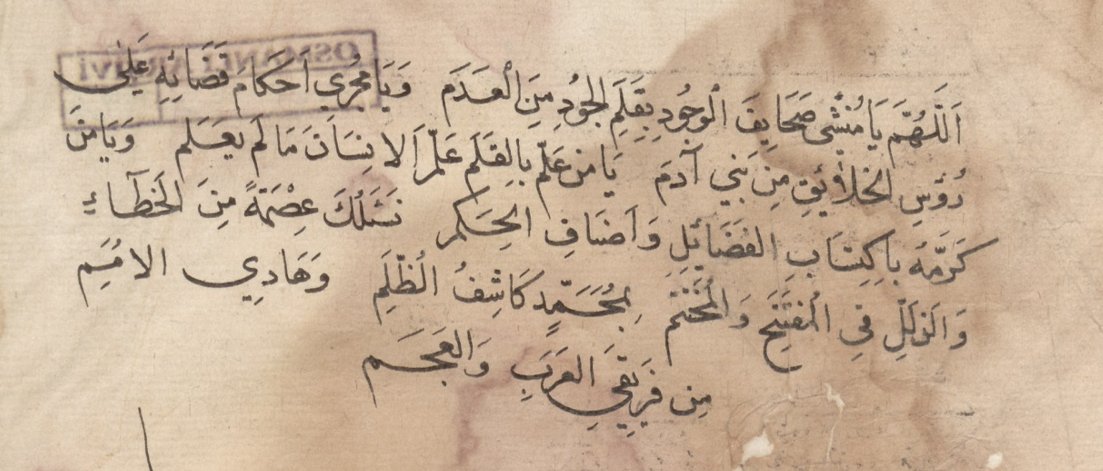 اَللّٰهُمَّ يَا مُنْشِئَ صَحَايِفَ الْوُجُودِ بِقَلَمِ الجُودِ مِنَ الْعَدَمِ وَيَا مُجْرِي اَحَكَامَ قَضَائِهِ عَلٰى
رُؤُسِ الخَلَائِقِ مِنِ بَنِي آدَمَ يَا مَنْ عَلَّمَ بِالقَلَمِ عَلَّمَ اَلاِنْسَانَ مَا لَمْ يَعْلَم وَيَا مَنْ
كَرَّمَهُ بِاكِتَابِ الفَضَائِلِ وَاَصْنَافِ الحِكَمِ نَسْئَلُكَ عِصْمَةً مِنَ الخَطَاءِ
وَالزَلَلِ فِي الْمُفْتَتَحِ وَالْمُخْتَتَمِ بِمُحَمَّدٍ كَاشِفُ الظُّلَمِ وَهَادِي الاُمَمِ
مِن فَرِيقَيِ العَرَبِ وَالعَجَمِ
OSMANLI